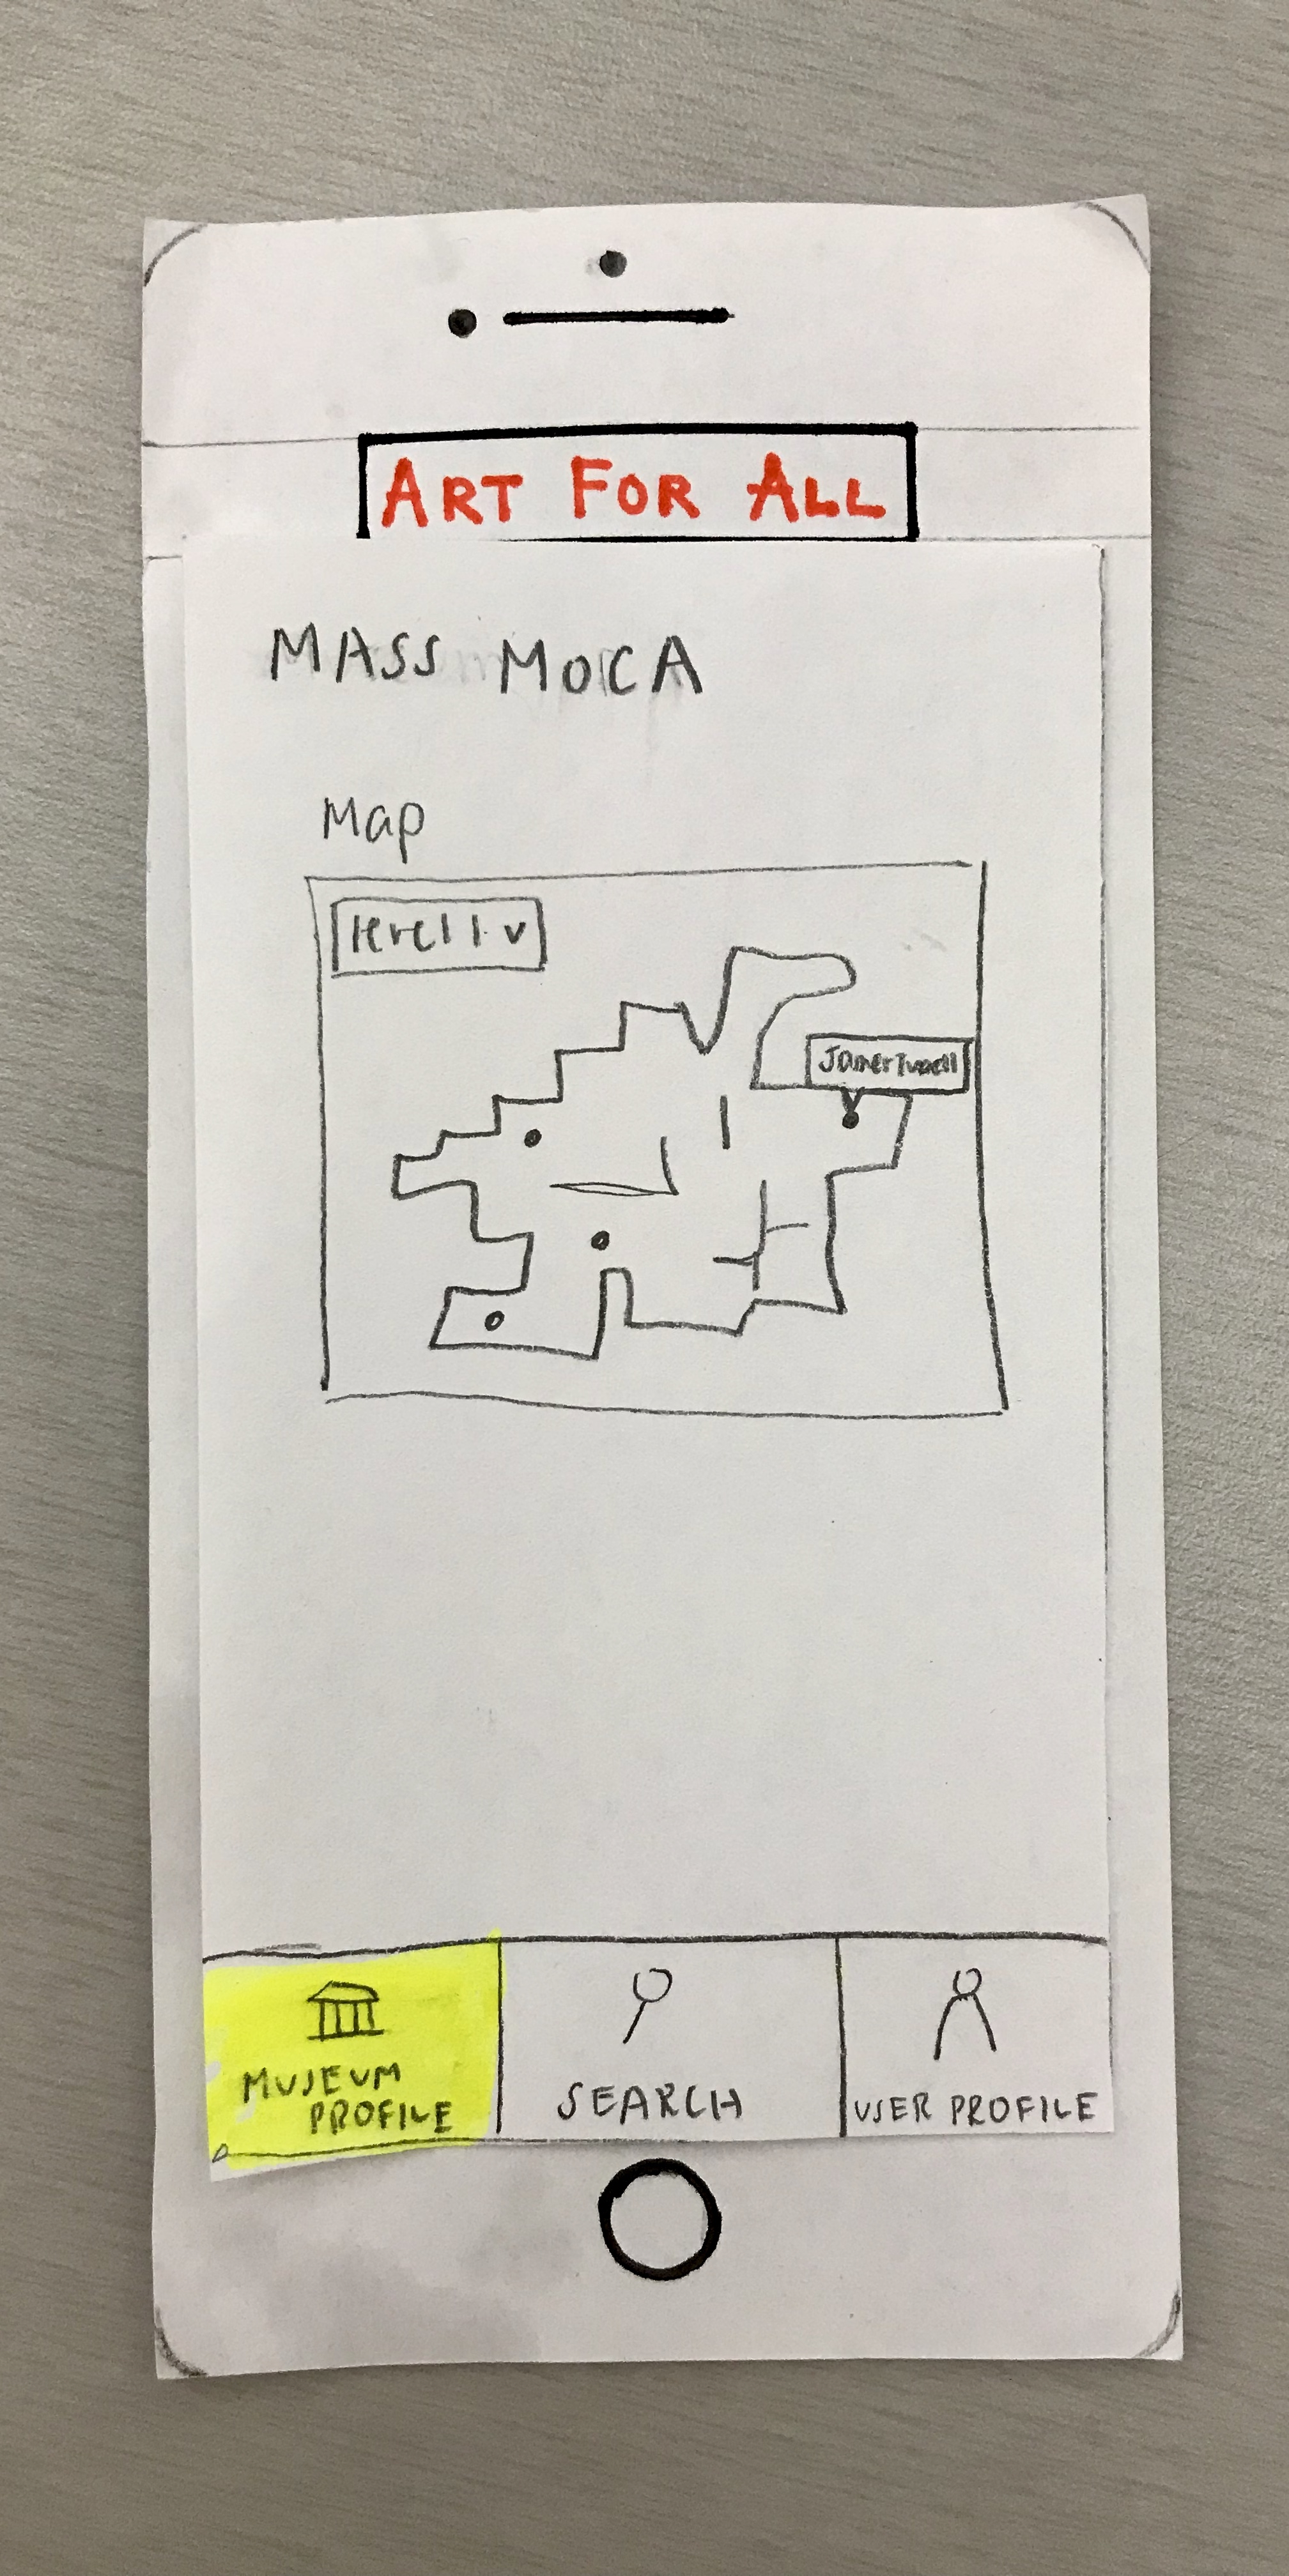 ART FOR ALL
MASS MOCA
Map
level 1 v
James Turrell
MUSEUM
PROFILE
SEARCH
USER PROFILE